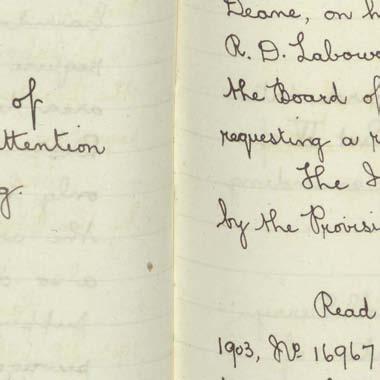 of
ttention
g.
Deane, on h
R. D. Labow
the Board of
requesting a r
The I
by the Provisi
Read
1903, No. 16967